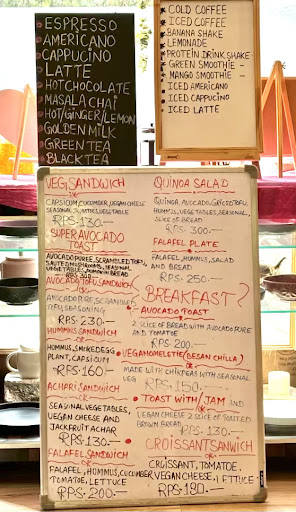 ESPRESSO
AMERICANO
CAPPUCINO
LATTE
HOTCHOCOLATE
MASALA CHAI
HOT/GINGER/LEMON
GOLDEN MILK
GREEN TEA
BLACK TEA
COLD COFFEE
ICED COFFEE
BANANA SHAKE
LEMONADE
PROTEIN DRINK, SHAKE
GREEN SMOOTHIE -
MANGO SMOOTHIE -
ICED AMERICANO
ICED CAPPUCINO
ICED LATTE
VEG SANDWICH
CAPSICUM, CUCUMBER, VEGAN CHEESE
SEASONAL VEGETABLE
RPS-130-
SUPER AVOCADO
TOAST
AVOCADO PUREE, SCRAMBLED TOFU,
SAUTED MUSHROOMS, SEASONAL
VEGETABLES,
RPS 300-
AVOCADO TOFU SANDWICH
AVOCADO PURE, SCRAMBLED
TOFU, SEASONING
RPS-230-
HUMMUS SANDWICH
HUMMUS, SMOKED EGG
PLANT, CAPSICUM
RPS-160-
ACHARI SANDWICH
SEASONAL VEGETABLES,
VEGAN CHEESE AND
JACKFRUIT ACHAR
RPS-130-
FALAFEL SANDWICH
FALAFEL, HUMMUS, CUCUMBER,
TOMATOE, LETTUCE
RPS-200-
QUINOA SALAD
QUINOA, AVOCADO, GRILLED TOFU,
HUMMUS, VEGETABLES, SEASONAL,
SLICE OF BREAD
RPS-300-
FALAFEL PLATE
FALAFEL, HUMMUS, SALAD
AND BREAD
RPS-250-
BREAKFAST?
AVOCADO TOAST
2 SLICE OF BREAD WITH AVOCADO PUREE
AND TOMATOE
RPS-200-
VEGAN OMELETTE (BESAN CHILLA)
MADE WITH CHICKPEAS WITH SEASONAL
VEG
RPS-150-
TOAST WITH/JAM AND
VEGAN CHEESE 2 SLICE OF TOASTED
BROWN BREAD
RPS-130-
CROISSANT SANWICH
CROISSANT, TOMATOE,
VEGAN CHEESE, LETTUCE
RPS-180-